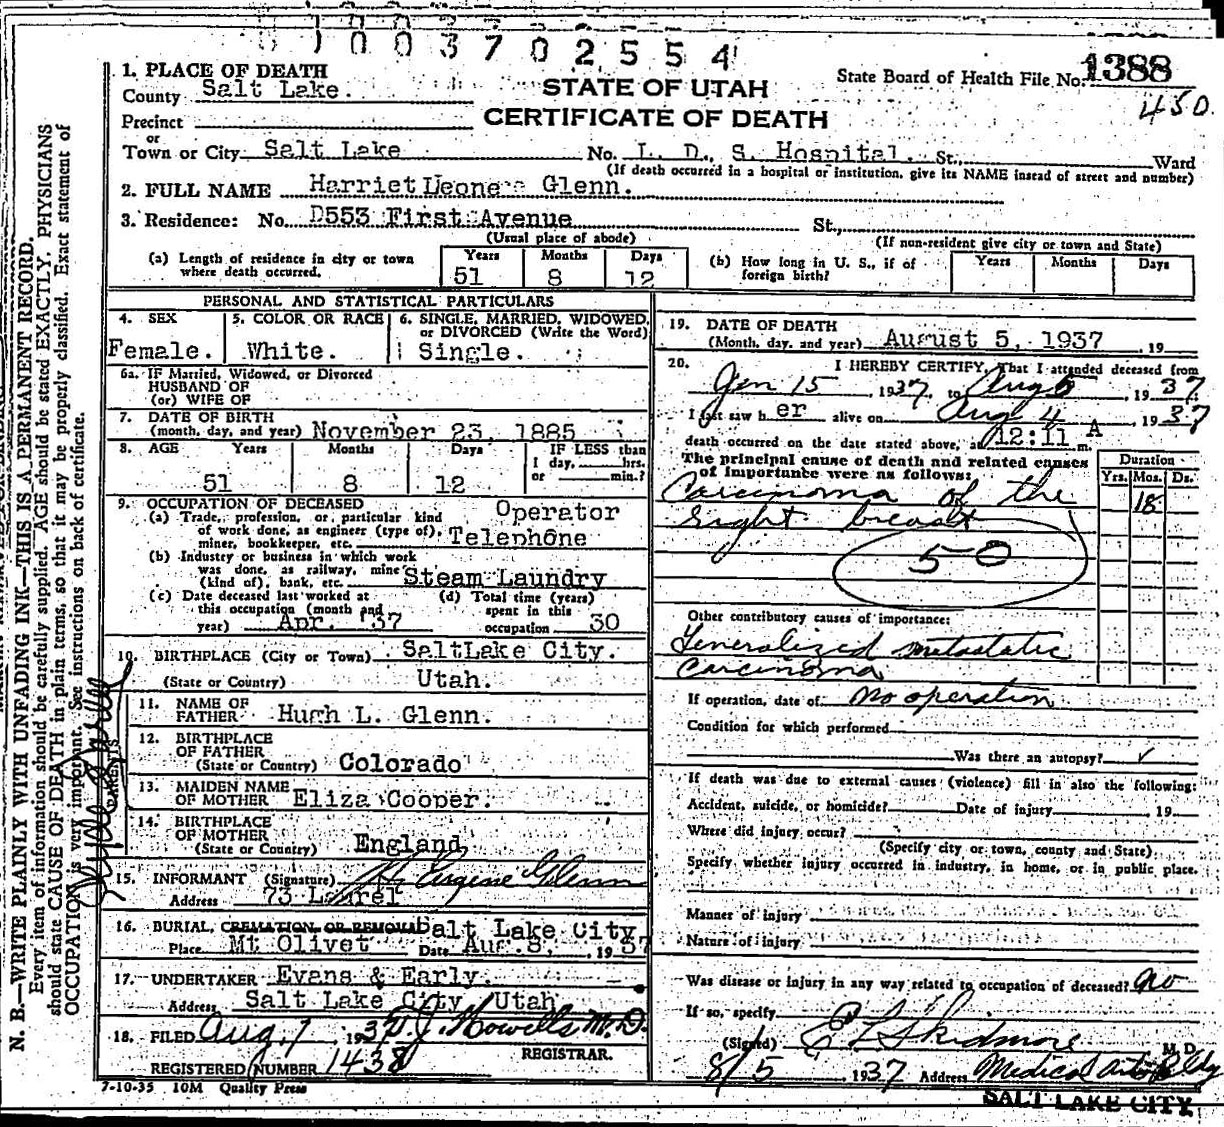 1003702554
1. PLACE OF DEATH
County Salt Lake.
STATE OF UTAH
State Board of Health File No. 1388
450
Precinct
CERTIFICATE OF DEATH
or
Town or City Salt Lake No. L. D. S. Hospital. St., Ward
(If death occurred in a hospital or institution, give its NAME instead of street and number)
2. FULL NAME Harriet Leone Glenn.
3. Residence: No. D553 First Avenue St.,
(Usual place of abode) (If non-resident give city or town and State)
(a) Length of residence in city or town where death occurred.
Years Months Days
51 8 12
(b) How long in U. S., if of foreign birth?
Years Months Days
PERSONAL AND STATISTICAL PARTICULARS
4. SEX
Female.
5. COLOR OR RACE
White.
6. SINGLE, MARRIED, WIDOWED,
or DIVORCED (Write the Word)
Single.
6a. IF Married, Widowed, or Divorced
HUSBAND OF
(or) WIFE OF
7. DATE OF BIRTH
(month, day, and year) November 23, 1885
8. AGE Years Months Days
51 8 12
IF LESS than
1 day, hrs.
or min.?
9. OCCUPATION OF DECEASED
(a) Trade, profession, or particular kind
of work done, as engineer (type of),
miner, bookkeeper, etc.
Operator
Telephone
(b) Industry or business in which work
was done, as railway, mine
(kind of), bank, etc. Steam Laundry
(c) Date deceased last worked at
this occupation (month and
year) Apr. '37
(d) Total time (years)
spent in this
occupation 30
10. BIRTHPLACE (City or Town) SaltLake City.
(State or Country) Utah.
PARENTS
11. NAME OF
FATHER Hugh L. Glenn.
12. BIRTHPLACE
OF FATHER
(State or Country) Colorado
13. MAIDEN NAME
OF MOTHER Eliza Cooper.
14. BIRTHPLACE
OF MOTHER
(State or Country) England
15. INFORMANT (Signature) H. Eugene Glenn
Address 73 Laurel
16. BURIAL, CREMATION OR REMOVAL Salt Lake City
Place Mt Olivet Date Aug. 8, 1937
17. UNDERTAKER Evans & Early.
Address Salt Lake City Utah
18. FILED Aug. 7 1937 J. Howells M.D.
REGISTRAR.
REGISTERED NUMBER 1438
7-10-35 10M Quality Press
19. DATE OF DEATH
(Month, day, and year) August 5, 1937, 19
20. I HEREBY CERTIFY, That I attended deceased from
Jan 15 1937, to Aug 5 1937
I last saw her alive on Aug 4, 1937
death occurred on the date stated above, at 12:11 A m.
The principal cause of death and related causes
of importance were as follows:
Duration
Yrs. Mos. Ds.
Carcinoma of the 18
right breast
50
Other contributory causes of importance:
Generalized metastatic
carcinoma
If operation, date of no operation
Condition for which performed
Was there an autopsy? ✓
If death was due to external causes (violence) fill in also the following:
Accident, suicide, or homicide? Date of injury 19
Where did injury occur?
(Specify city or town, county and State)
Specify whether injury occurred in industry, in home, or in public place.
Manner of injury
Nature of injury
Was disease or injury in any way related to occupation of deceased? no
If so, specify
(Signed) E L Skidmore
M. D.
8/5 1937 Address Medical Arts Bldg
SALT LAKE CITY
N. B.—WRITE PLAINLY WITH UNFADING INK—THIS IS A PERMANENT RECORD.
Every item of information should be carefully supplied. AGE should be stated EXACTLY. PHYSICIANS
should state CAUSE OF DEATH in plain terms, so that it may be properly classified. Exact statement of
OCCUPATION is very important. See instructions on back of certificate.